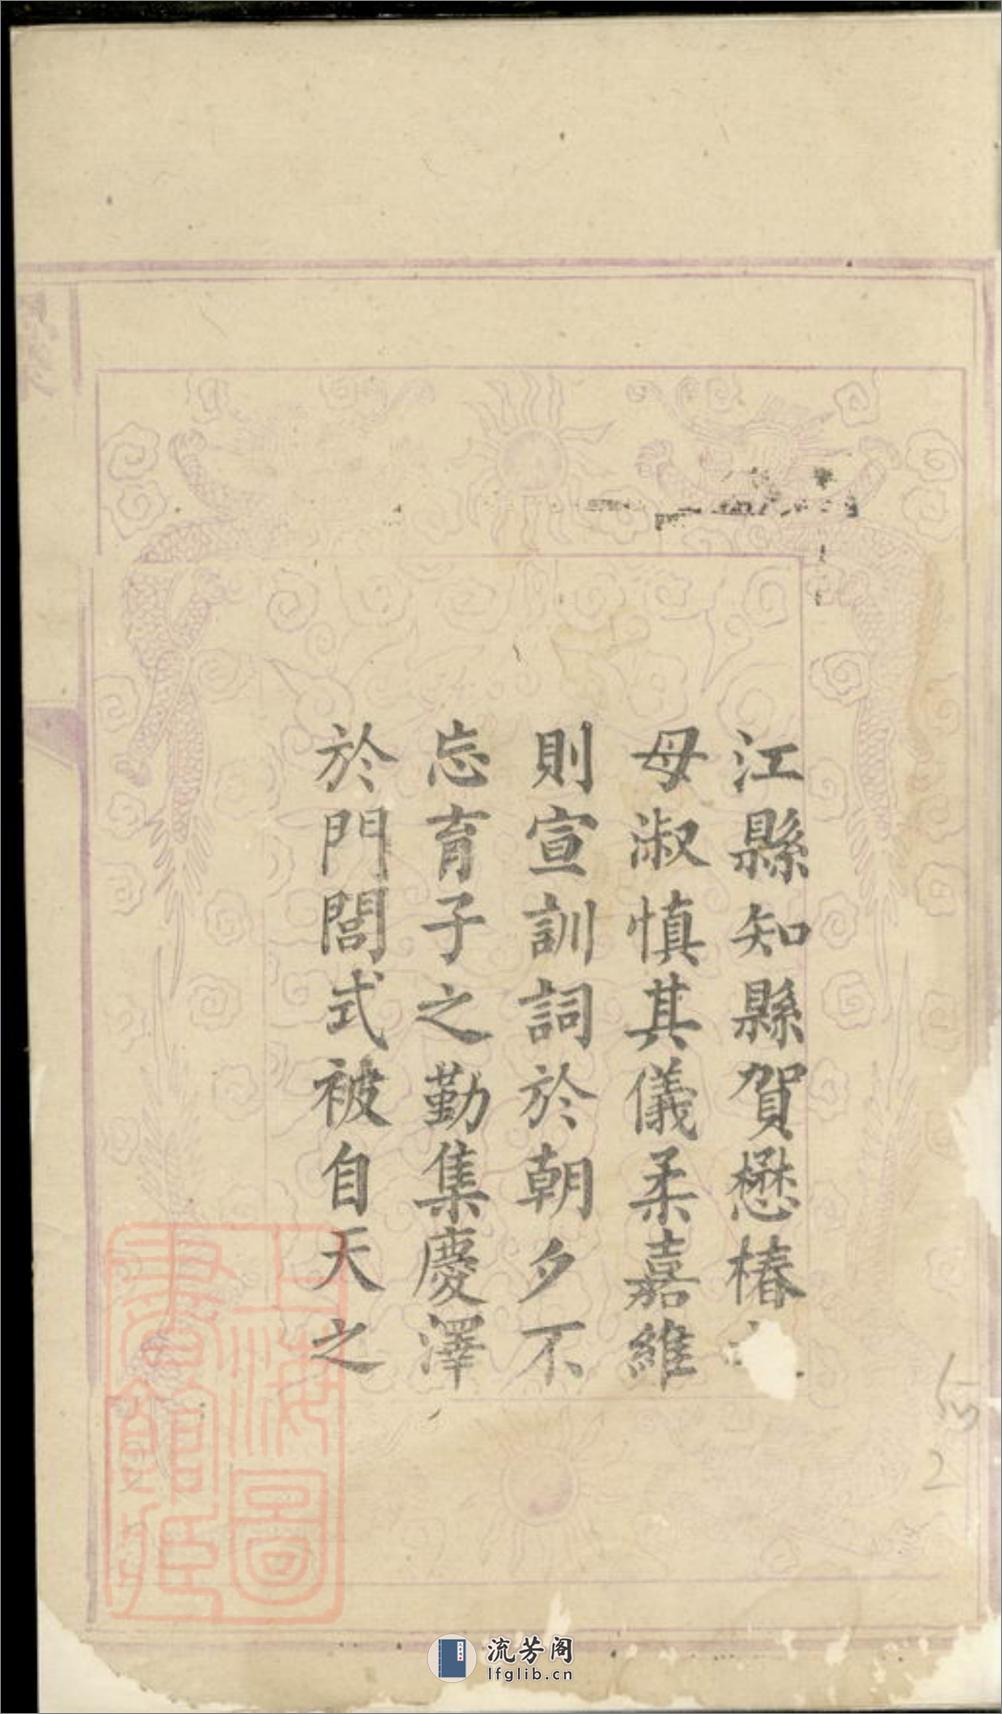 江縣知縣賀懋椿
母淑慎其儀柔嘉維
則宣訓詞於朝夕不
忘育子之勤集慶澤
於門閭式被自天之
上海圖
書館藏
流芳阁
lfglib.cn
2